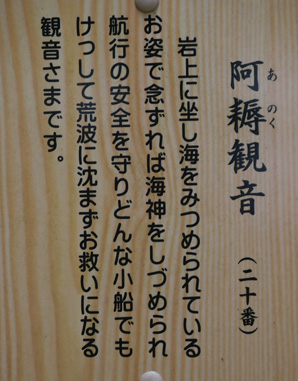 阿耨観音
あ のく
(二十番)
岩上に坐し海をみつめられている
お姿で念ずれば海神をしづめられ
航行の安全を守りどんな小船でも
けっして荒波に沈まずお救いになる
観音さまです。